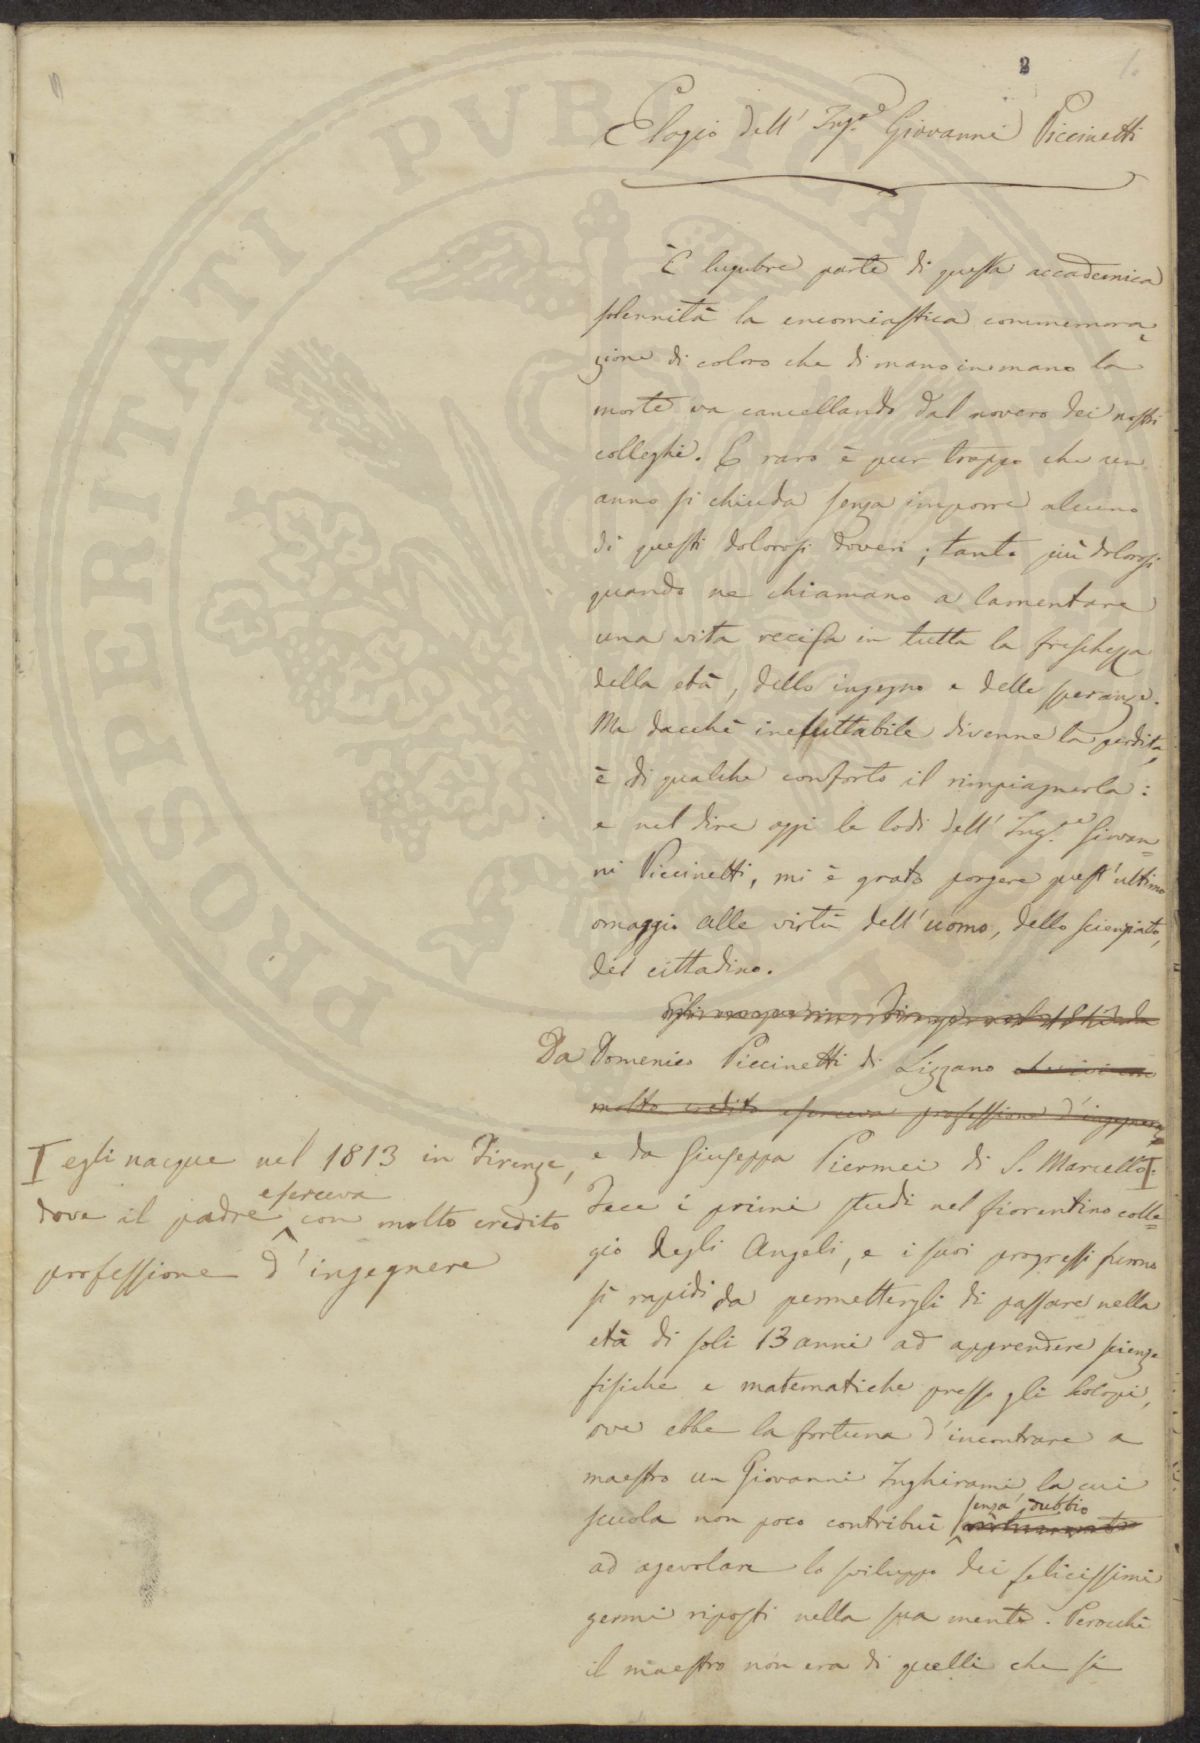 2
1.
Elogio dell' Ing.e Giovanni Piccinetti
È lugubre parte di questa accademica
solennità la encomiastica commemora=
zione di coloro che di mano in mano la
morte va cancellando dal novero dei nostri
colleghi. E raro è pur troppo che un
anno si chiuda senza imporre alcuno
di questi dolorosi doveri; tanto più dolorosi
quando ne chiamano a lamentare
una vita recisa in tutta la freschezza
della età, dello ingegno e delle speranze.
Ma dacchè ineluttabile divenne la perdita,
è di qualche conforto il rimpiagnerla:
e nel dire oggi le lodi dell' Ing.e Giovan=
ni Piccinetti, mi è grato porgere quest'ultimo
omaggio alle virtù dell'uomo, dello scienziato,
del cittadino.
Egli nacque in Firenze nel 1813 da
Da Domenico Piccinetti di Lizzano che ivi con
molto credito eserceva professione d'ingegnere
e da Giuseppa Piermei di S. Marcello.
I egli nacque nel 1813 in Firenze,
dove il padre eserceva con molto credito
professione d'ingegnere
Fece i primi studi nel fiorentino colle=
gio degli Angeli, e i suoi progressi furono
sì rapidi da permettergli di passare nella
età di soli 13 anni ad apprendere scienze
fisiche e matematiche presso gli Scolopi,
ove ebbe la fortuna d'incontrare a
maestro un Giovanni Inghirami, la cui
scuola non poco contribuì senza dubbio
ad agevolare lo sviluppo dei felicissimi
germi riposti nella sua mente. Perocchè
il maestro non era di quelli che si
PROSPERITATI PVBLICAE